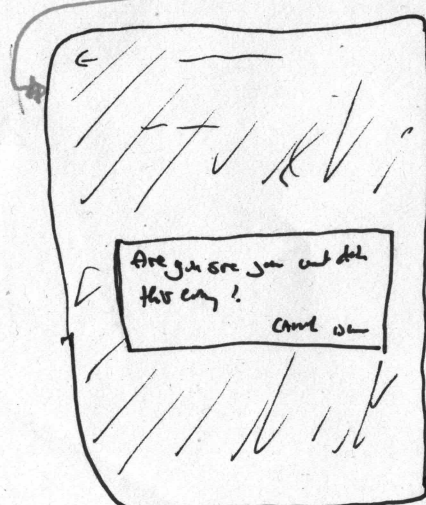 Are you sure you want delete
this entry?
Cancel